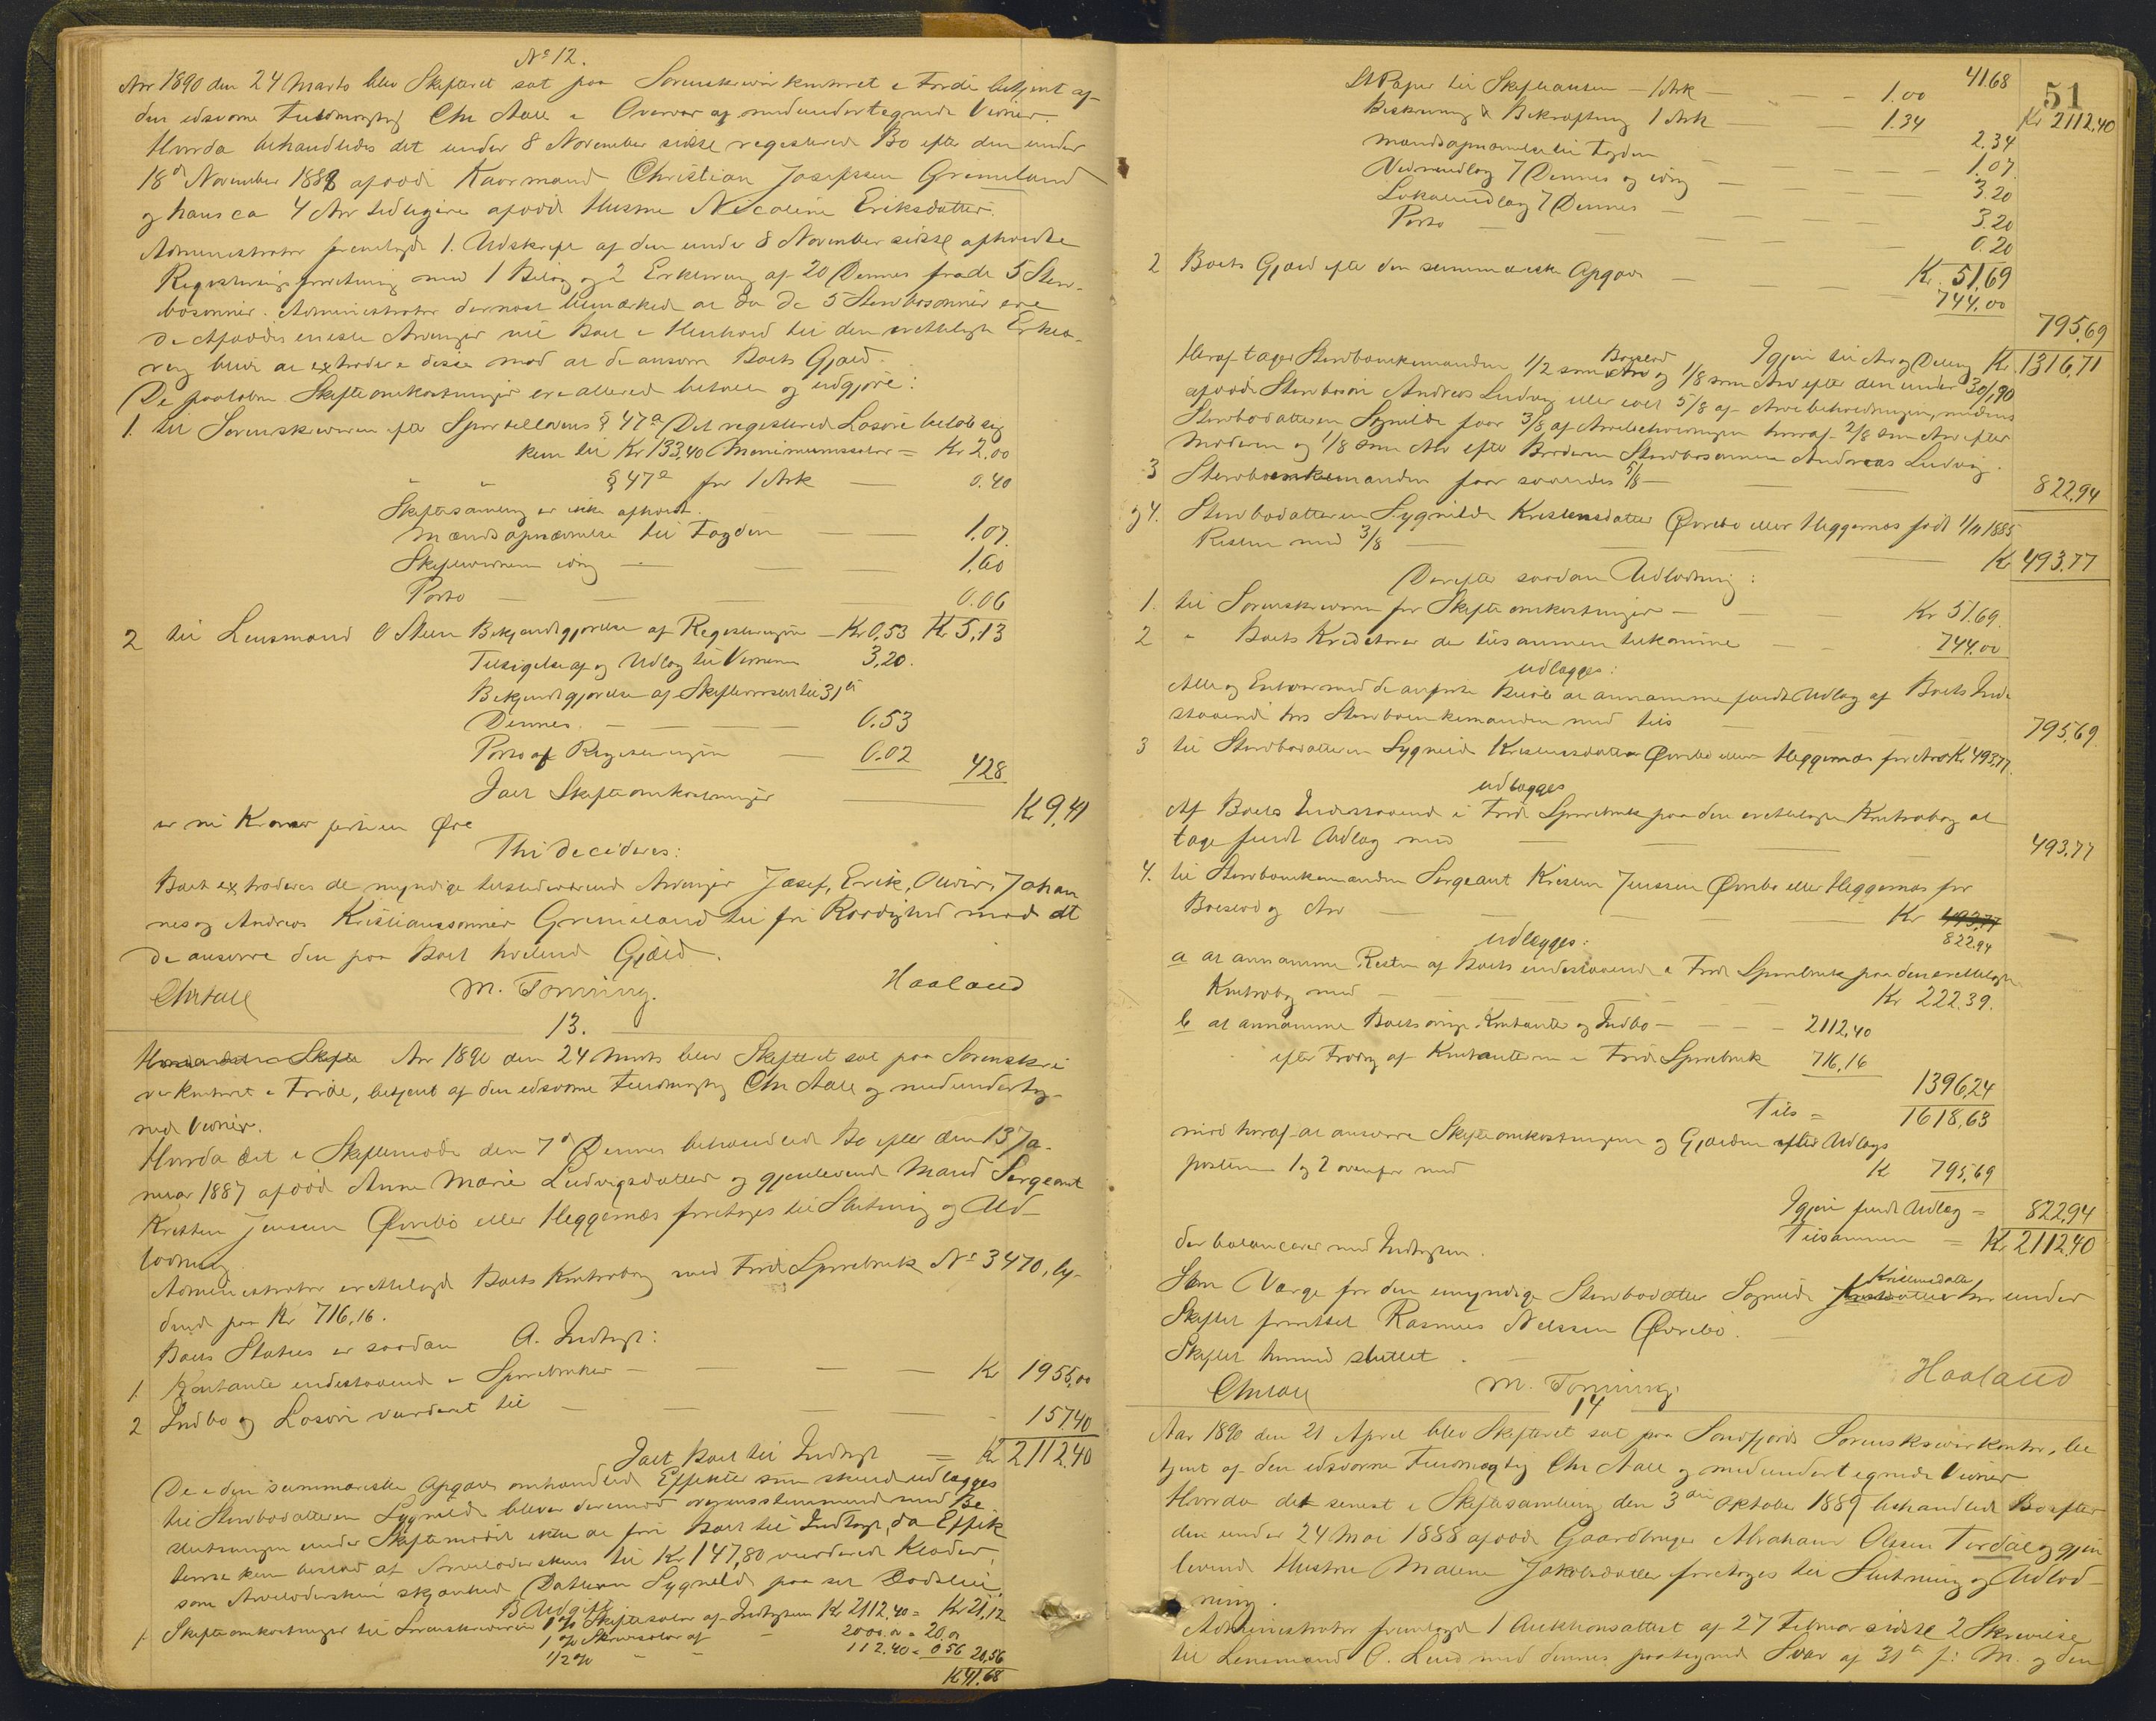 No 12.
Aar 1890 den 24 Marts blev Skifteret sat paa Sorenskriverkontoret i Førde betjent af
den edsvorne Fuldmægtig Chr Aall i Overvær af medundertegnede Vidner.
Hvorda behandledes det under 8 November sidste registrerede Bo efter den under
18de November 1888 afdøde Kaarmand Christian Josefssen Grimeland
og hans ca 4 Aar tidligere afdøde Hustru Nicoline Eriksdatter.
Administrator fremlagde 1. Udskrift af den under 8 November sidste afholdte
Registreringsforretning med 1 Bilag og 2 Erklæring af 20 Dennes fra de 5 Sterv-
bosønner. Administrator dernæst bemærkede at da de 5 Stervbosønner ere
de Afdødes eneste Arvinger vil Boet i Henhold til den fremlagte Erklæ-
ring blive at extradere disse mod at de ansvare Boets Gjæld.
De paaløbne Skifteomkostninger ere allerede betalte og udgjøre:
1. til Sorenskriveren efter Sportellovens § 47a Det registrerede Løsøre beløb sig
kun til Kr 133,40 Minimumssalær = Kr 2.00
" " § 47e for 1 Ark — 0.40
Skiftesamling er ikke afholdt.
Mandsopnævnelse til Fogden — 1.07.
Skiftevidnerne — — 1.60
Porto — — — 0.06
2 til Lensmand O Steen Bekjendtgjørelse af Registreringen — Kr 0,53 Kr 5,13
Tilsigelse af og Udlæg til Vidnerne 3,20.
Bekjendtgjørelse af Skiftet til 31te
Dennes. — 0.53
Porto af Registreringen — 0.02 428
Ialt Skifteomkostninger — Kr 9,41
er ni Kroner firti en Øre
Thi decideres:
Boet extraderes de myndige tilstedeværende Arvinger Josef, Erik, Oliver, Johan
nes og Andreas Kristianssønner Grimeland til fri Raadighed mod at
de ansvare den paa Boet hvilende Gjæld.
Chr Aall M. Tonning. Haaland
13.
Aar 1890 den 24 Marts blev Skifteret sat paa Sorenskri
verkontoret i Førde, betjent af den edsvorne Fuldmægtig Chr Aall og medunderteg-
nede Vidner.
Hvorda det i Skiftemøde den 7de Dennes behandlede Bo efter den 13 Ja-
nuar 1887 afdøde Anne Marie Ludvigsdatter og gjenlevende Mand Sergeant
Kristen Jensen Øvrebø eller Heggernæs foretoges til Slutning og Ud-
lodning.
Administrator fremlagde Boets Kontrabog med Førde Sparebank No 3470, ly-
dende paa Kr 716,16.
Boets Status er saadan A. Indtægt:
1. Kontante indestaaende i Sparebanker — — — Kr 1955,00
2 Indbo og Løsøre vurderet til — — — 157,40
Ialt Boet til Indtægt = Kr 2112.40
De i den summariske Opgave omhandlede Effekter som skulde udlægges
til Stervbodatteren Sygnilde bliver derimod overensstemmende med Be
slutningen under Skiftemødet ikke at føre Boet til Indtægt, da Effek
terne kun bestod af Arveladerskens til Kr 147,80 vurderede Klæder,
som Arveladersken skjænkede Datteren Sygnilde paa sit Dødsleie.
B Udgift
1 Skifteomkostninger til Sorenskriveren 1% Skiftesalær af Indtægten Kr 2112.40 = Kr 21,12
1 % Skrivesalær af — 2000.00 = 20,00
1/2 % " " 112.40 = 0 56 20,56
Kr 41.68
51
St Papir til Skiftebrevet — 1 Ark — 1.00 4168
Beskrivning & Bekræftning 1 Ark — 1.34 Kr 2112,40
2.34
Mandsopnævnelse til Fogden — 1.07
Vidneudlæg 7 Dennes — 3.20
Lokaleudlæg 7 Dennes — 3.20
Porto — 0.20
Kr. 51,69
2 Boets Gjæld efter den summariske Opgave — 744.00
795,69
Igjen til Arv og Deling Kr 1316,71
Heraf tager Stervboenkemanden 1/2 som Boeslod og 1/8 som Arv efter den under 30/1 90
afdøde Stervbosøn Andreas Ludvig eller ialt 5/8 af Arvebeholdningen, medens
Stervbodatteren Sygnilde faar 3/8 af Arvebeholdningen hvoraf 2/8 som Arv efter
Moderen og 1/8 som Arv efter Broderen Stervbosønnen Andreas Ludvig.
3 Stervboenkemanden faar saaledes 5/8 — 822,94
og 4. Stervbodatteren Sygnilde Kristensdatter Øvrebø eller Heggernæs født 1/11 1885
Resten med 3/8 — Kr 493.77
Derefter saadan Udlodning:
1. til Sorenskriveren for Skifteomkostninger — Kr 51.69.
2 " Boets Kreditorer der tilsammen tilkomme — 744.00
udlægges:
Alle og Enhver med de anførte Beløb at annamme fuldt Udlæg af Boets Inde
staaende hos Stervboenkemanden med tils 795,69.
3 til Stervbodatteren Sygnilde Kristensdatter Øvrebø eller Heggernæs for Arv Kr 493,77.
udlægges
Af Boets Indestaaende i Førde Sparebank paa den fremlagte Kontrabog at
tage fuldt Udlæg med — 493.77
4. til Stervboenkemanden Sergeant Kristen Jenssen Øvrebø eller Heggernæs for
Boeslod og Arv — Kr 493,77
822.94
udlægges:
a at annamme Resten af Boets indestaaende i Førde Sparebank paa den fremlagte
Kontrabog med — Kr 222.39.
b at annamme Boets øvrige Kontanter og Indbo — 2112,40
efter Fradrag af Kontanterne i Førde Sparebank 716,16
1396,24
Tils = 1618,63
mod heraf at ansvare Skifteomkostningerne og Gjælden efter Udlægs
posterne 1 og 2 ovenfor med Kr 795,69
Igjen fuldt Udlæg = 822,94
Tilsammen = Kr 2112,40
der balancerer med Indtægten.
Som Værge for den umyndige Stervbodatter Sygnilde Kristensdatter har under
Skiftet fremstillet Rasmus Nilssen Øvrebø.
Skiftet hermed sluttet.
Chr Aall M. Tonning. Haaland
14
Aar 1890 den 21 April blev Skifteret sat paa Søndfjords Sorenskriverkontor, be
tjent af den edsvorne Fuldmægtig Chr Aall og medundertegnede Vidner
Hvorda det senest i Skiftesamling den 3die Oktober 1889 behandlede Bo efter
den under 24 Mai 1888 afdøde Gaardbruger Abraham Olsen Førdal og gjen
levende Hustru Malene Jakobsdatter foretoges til Slutning og Udlod-
ning.
Administrator fremlagde 1 Auktionsattest af 27 Februar sidste 2 Skrivelse
til Lensmand O. Lund med dennes paategnede Svar af 31te f: M. og den